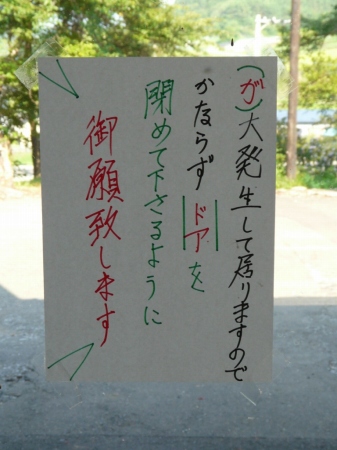 (が)大発生して居りますので
かならずドアを
閉めて下さるように
御願致します